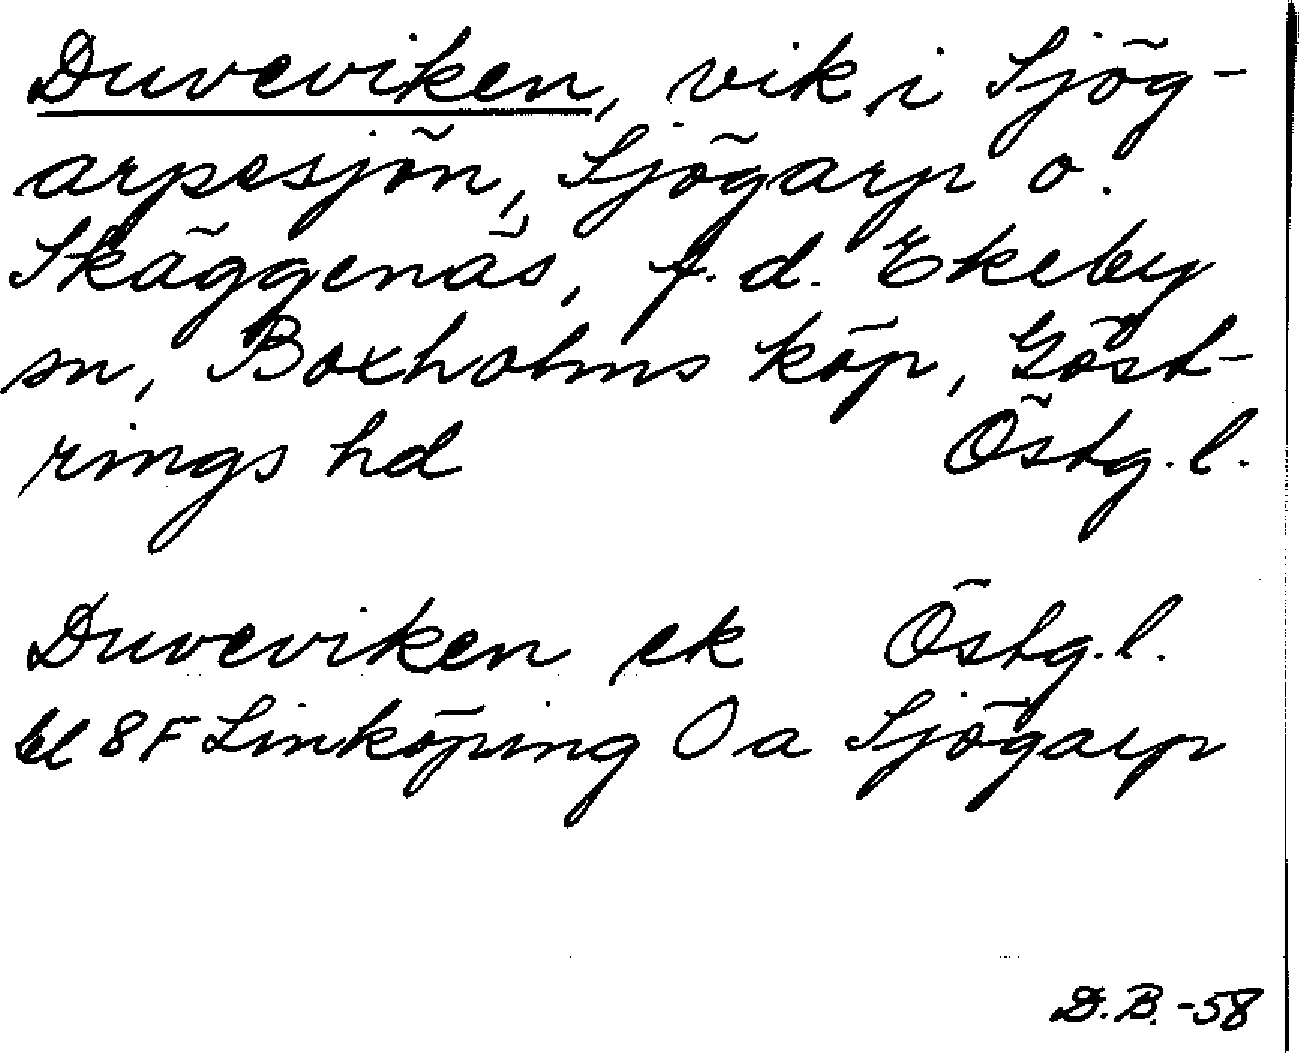 Duveviken, vik i Sjög-
arpesjön, Sjögarp o.
Skäggenäs, f. d. Ekeby
sn, Boxholms köp, Göst-
rings hd Östg. l.
Duveviken ek Östg. l.
bl 8F Linköping O a Sjögarp
D.B. -58